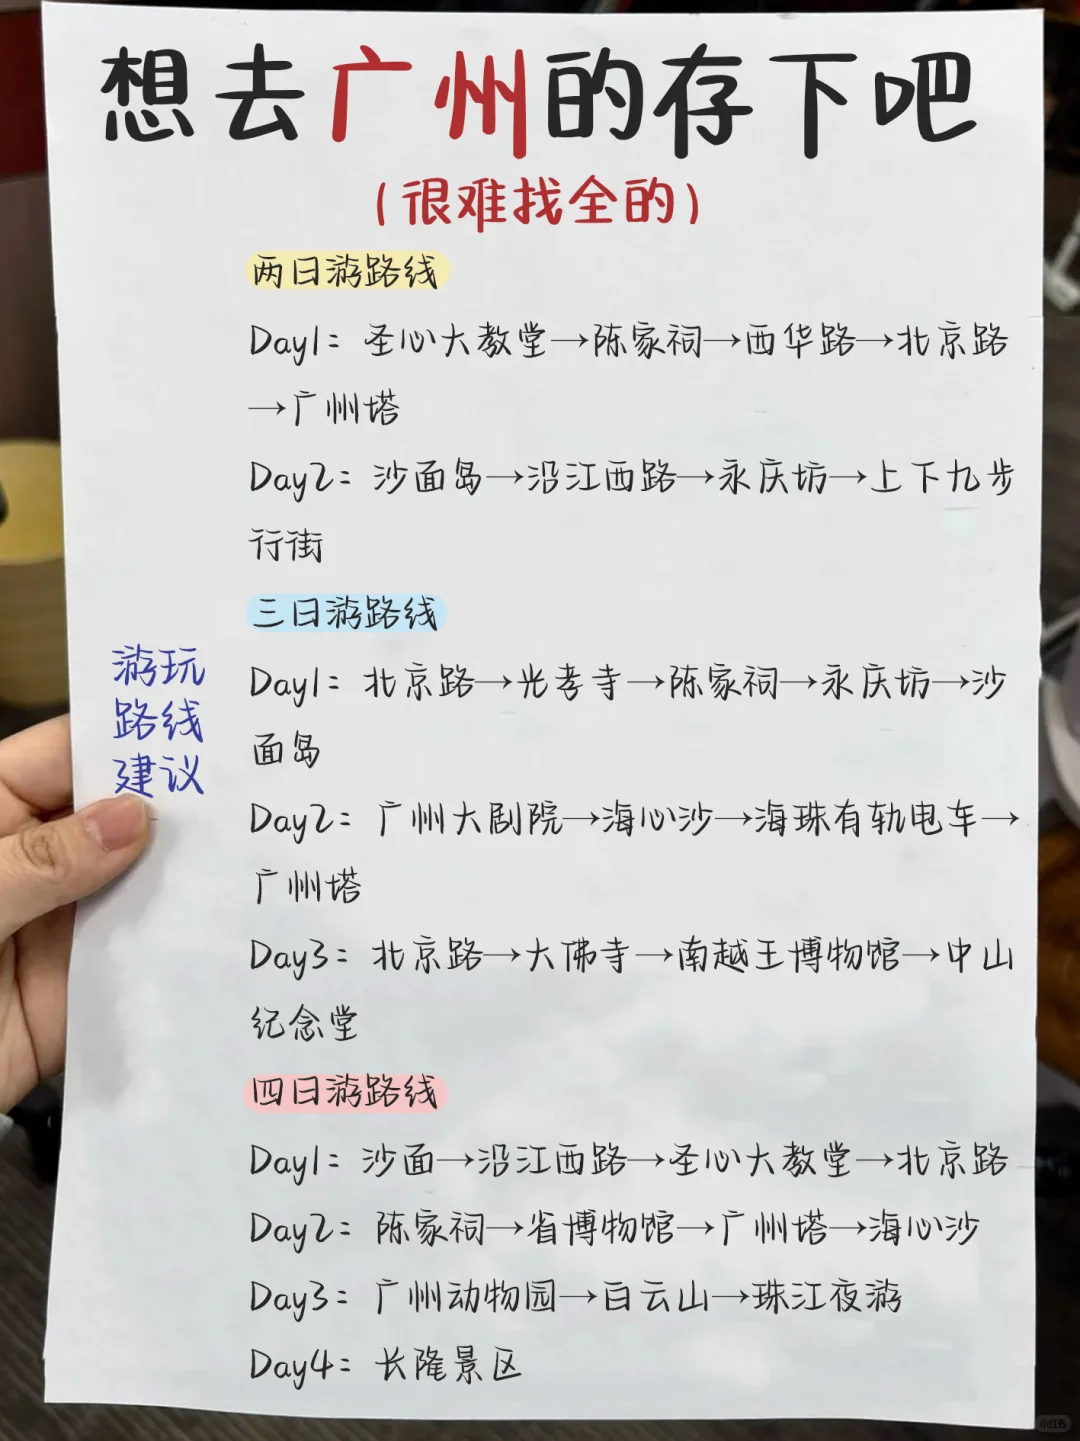 想去广州的存下吧
(很难找全的)
两日游路线
Day1: 圣心大教堂→陈家祠→西华路→北京路
→广州塔
Day2: 沙面岛→沿江西路→永庆坊→上下九步
行街
三日游路线
游玩
路线
建议
Day1: 北京路→光孝寺→陈家祠→永庆坊→沙
面岛
Day2: 广州大剧院→海心沙→海珠有轨电车→
广州塔
Day3: 北京路→大佛寺→南越王博物馆→中山
纪念堂
四日游路线
Day1: 沙面→沿江西路→圣心大教堂→北京路
Day2: 陈家祠→省博物馆→广州塔→海心沙
Day3: 广州动物园→白云山→珠江夜游
Day4: 长隆景区
小红书